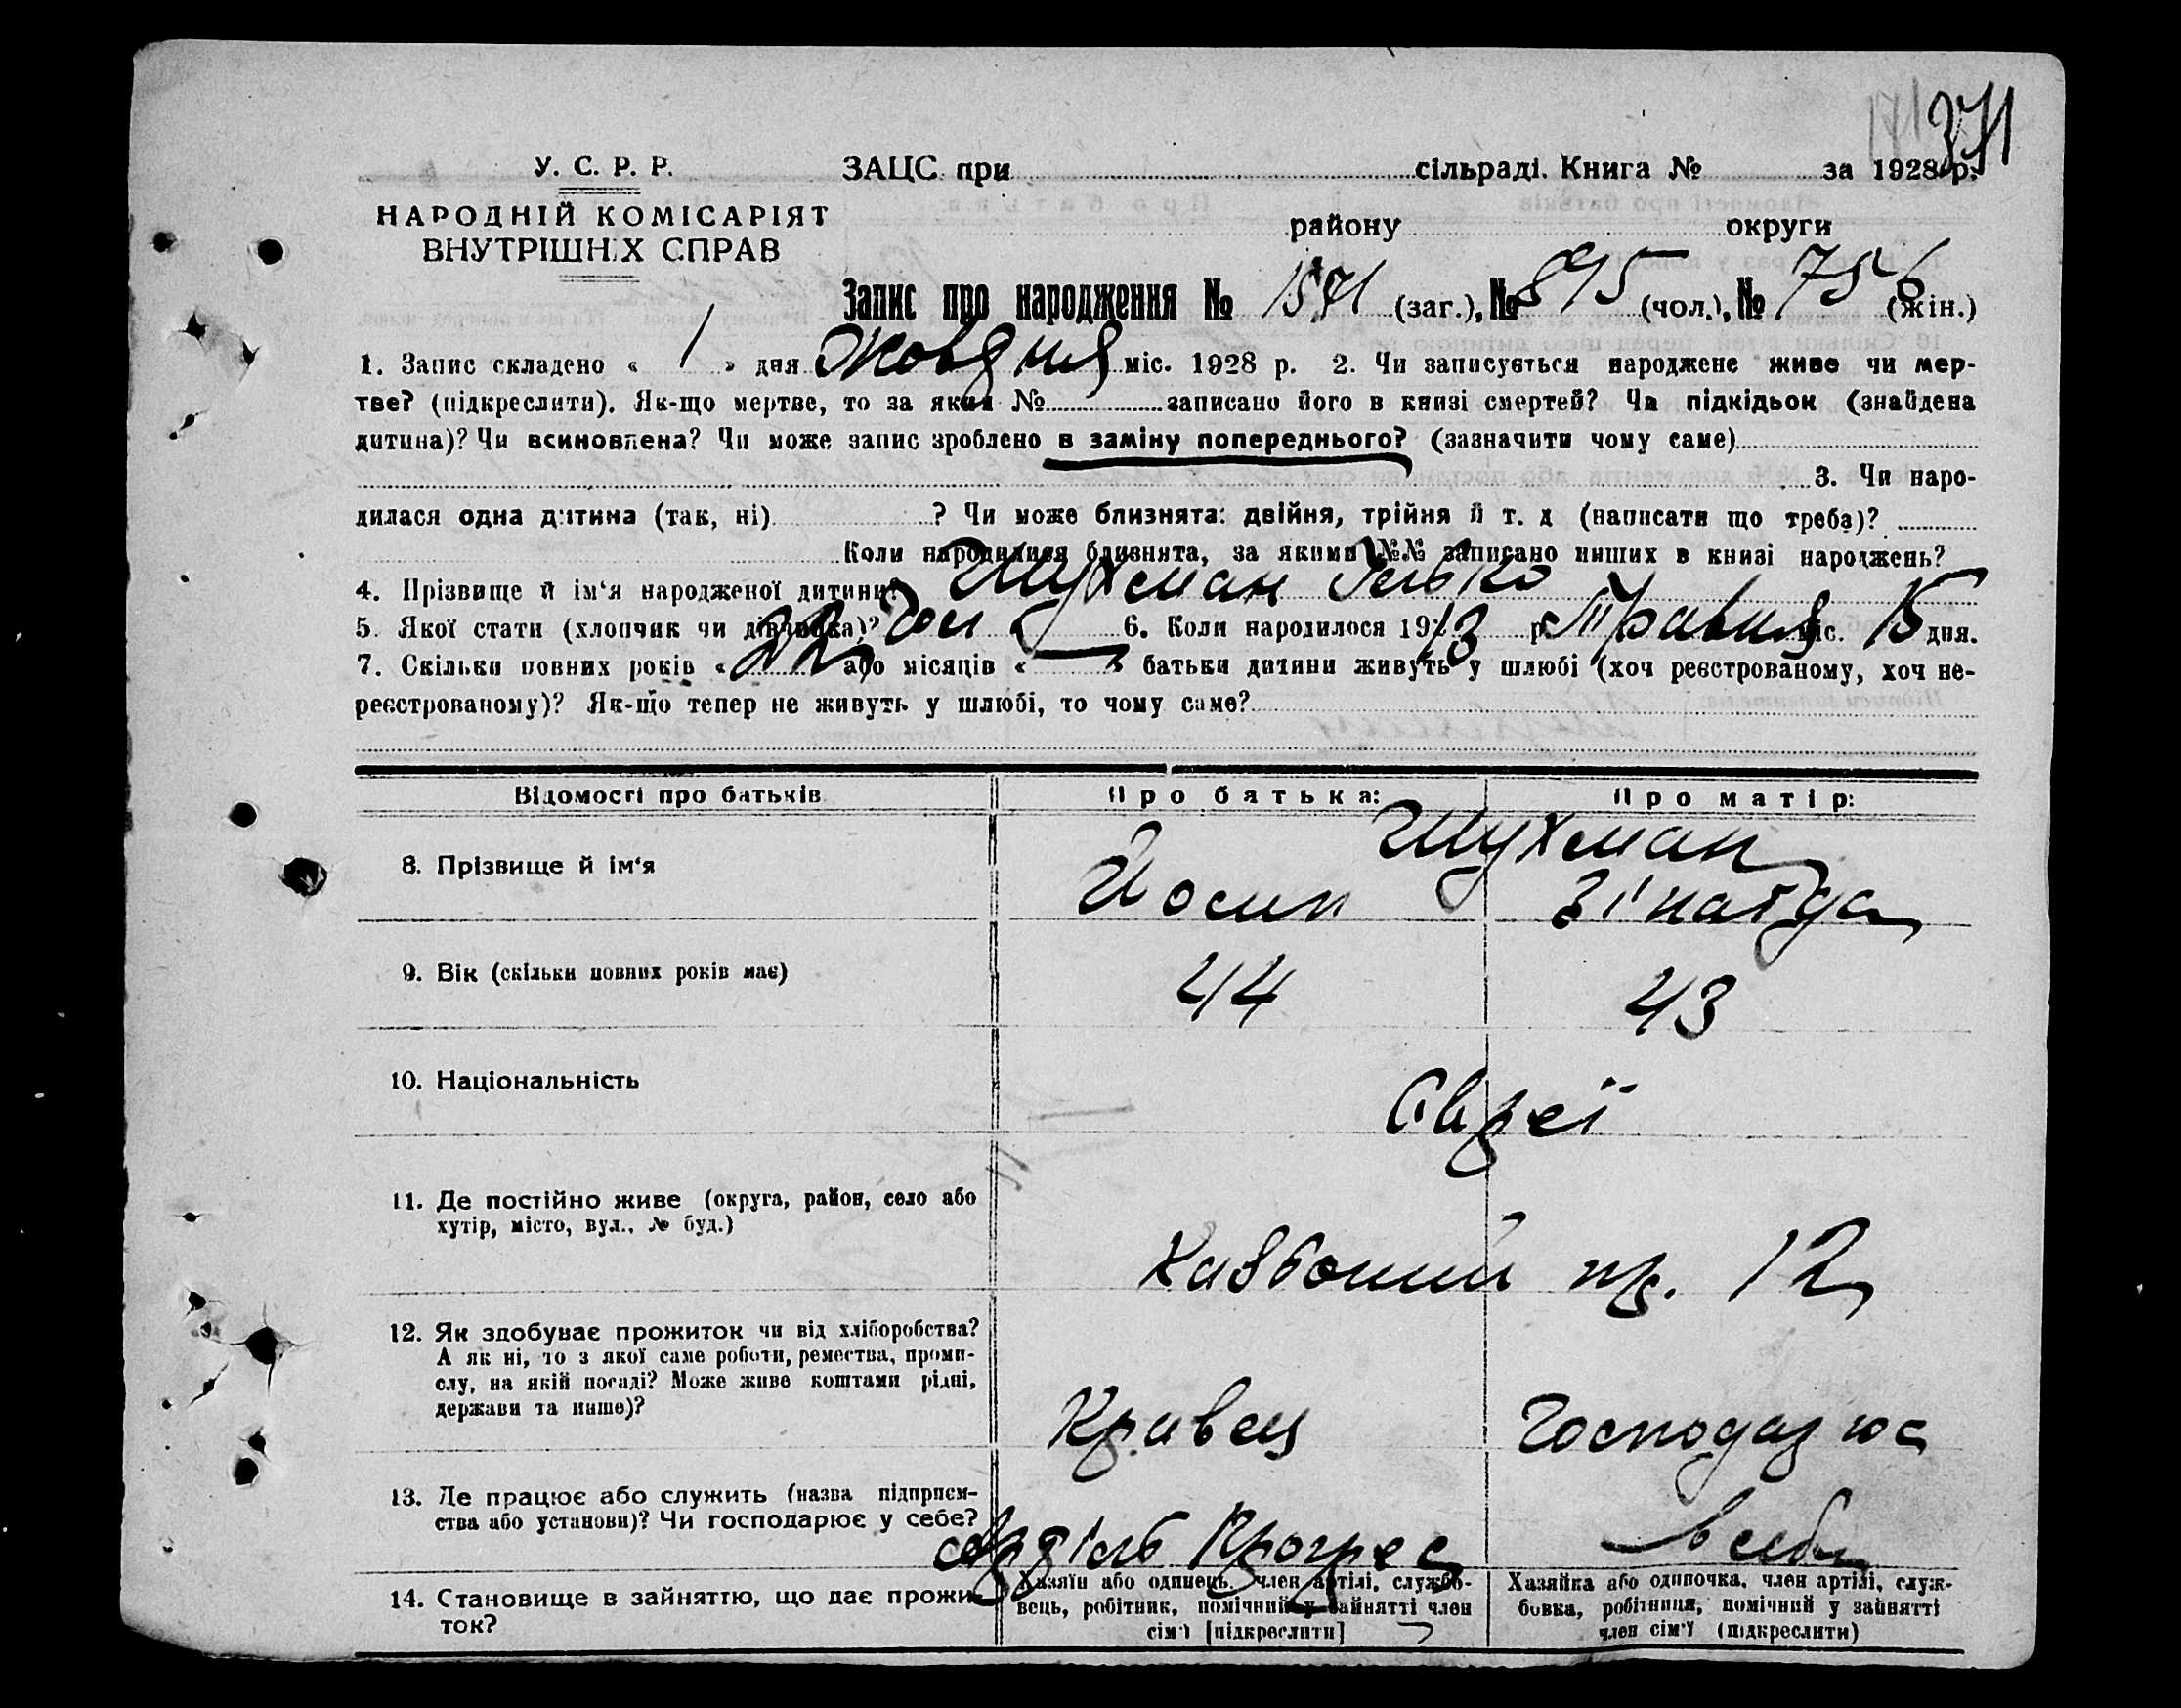 371
У. С. Р. Р. ЗАЦС при сільраді. Книга № за 1928 р.
НАРОДНІЙ КОМІСАРІЯТ
ВНУТРІШНІХ СПРАВ
району округи
Запис про народження № 1571 (заг.), № 815 (чол.), № 756 (жін.)
1. Запис складено « 1 » дня Жовтня міс. 1928 р. 2. Чи записується народжене живе чи мер-
тве? (підкреслити). Як-що мертве, то за яким № записано його в книзі смертей? Чи підкідьок (знайдена
дитина)? Чи всиновлена? Чи може запис зроблено в заміну попереднього? (зазначити чому саме)
3. Чи наро-
дилася одна дитина (так, ні) ? Чи може близнята: двійня, трійня й т. д (написати що треба)?
Коли народилися близнята, за якими №№ записано инших в книзі народжень?
4. Прізвище й ім‘я народженої дитини? Шухман
5. Якої стати (хлопчик чи дівчинка)? 6. Коли народилося 1913 р. Травня міс. 15 дня.
7. Скільки повних років « 22 або місяців « » батьки дитини живуть у шлюбі (хоч реєстрованому, хоч не-
реєстрованому)? Як-що тепер не живуть у шлюбі, то чому саме?
Відомості про батьків Про батька: Про матір:
Шухман
8. Прізвище й ім‘я Йосип Зінаїда
9. Вік (скільки повних років має) 44 43
10. Національність Євреї
11. Де постійно живе (округа, район, село або
хутір, місто, вул., № буд.)
пр. 12
12. Як здобуває прожиток чи від хліборобства?
А як ні, то з якої саме роботи, ремества, проми-
слу, на якій посаді? Може живе коштами рідні,
держави та инше)?
Кравець Господарює
13. Де працює або служить (назва підприєм-
ства або установи)? Чи господарює у себе?
Артіль Прогрес в себе
14. Становище в зайняттю, що дає прожи-
ток?
Хазяїн або одинець, член артілі, службо-
вець, робітник, помічний у зайнятті член
сім‘ї [підкреслити]
Хазяйка або одиночка, член артілі, служ-
бовка, робітниця, помічний у зайнятті
член сім‘ї (підкреслити)